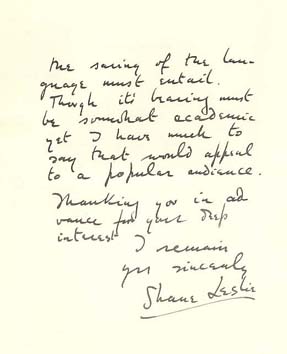 the saving of the lan-
guage must entail.
Though its bearing must
be somewhat academic
yet I have much to
say that would appeal
to a popular audience.
Thanking you in ad
vance for your deep
interest I remain
yrs sincerely
Shane Leslie